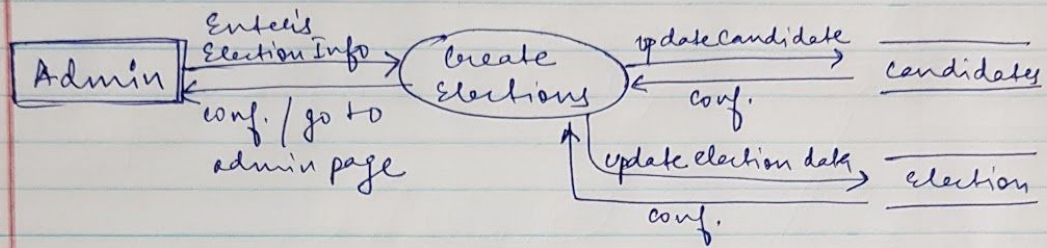 Enters
Election Info
Admin
conf. / go to
admin page
Create
Elections
update candidate
conf.
candidates
update election data
conf.
election